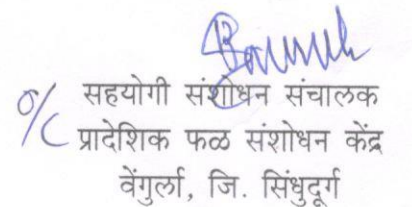 सहयोगी संशोधन संचालक
O/C प्रादेशिक फळ संशोधन केंद्र
वेंगुर्ला, जि. सिंधुदूर्ग